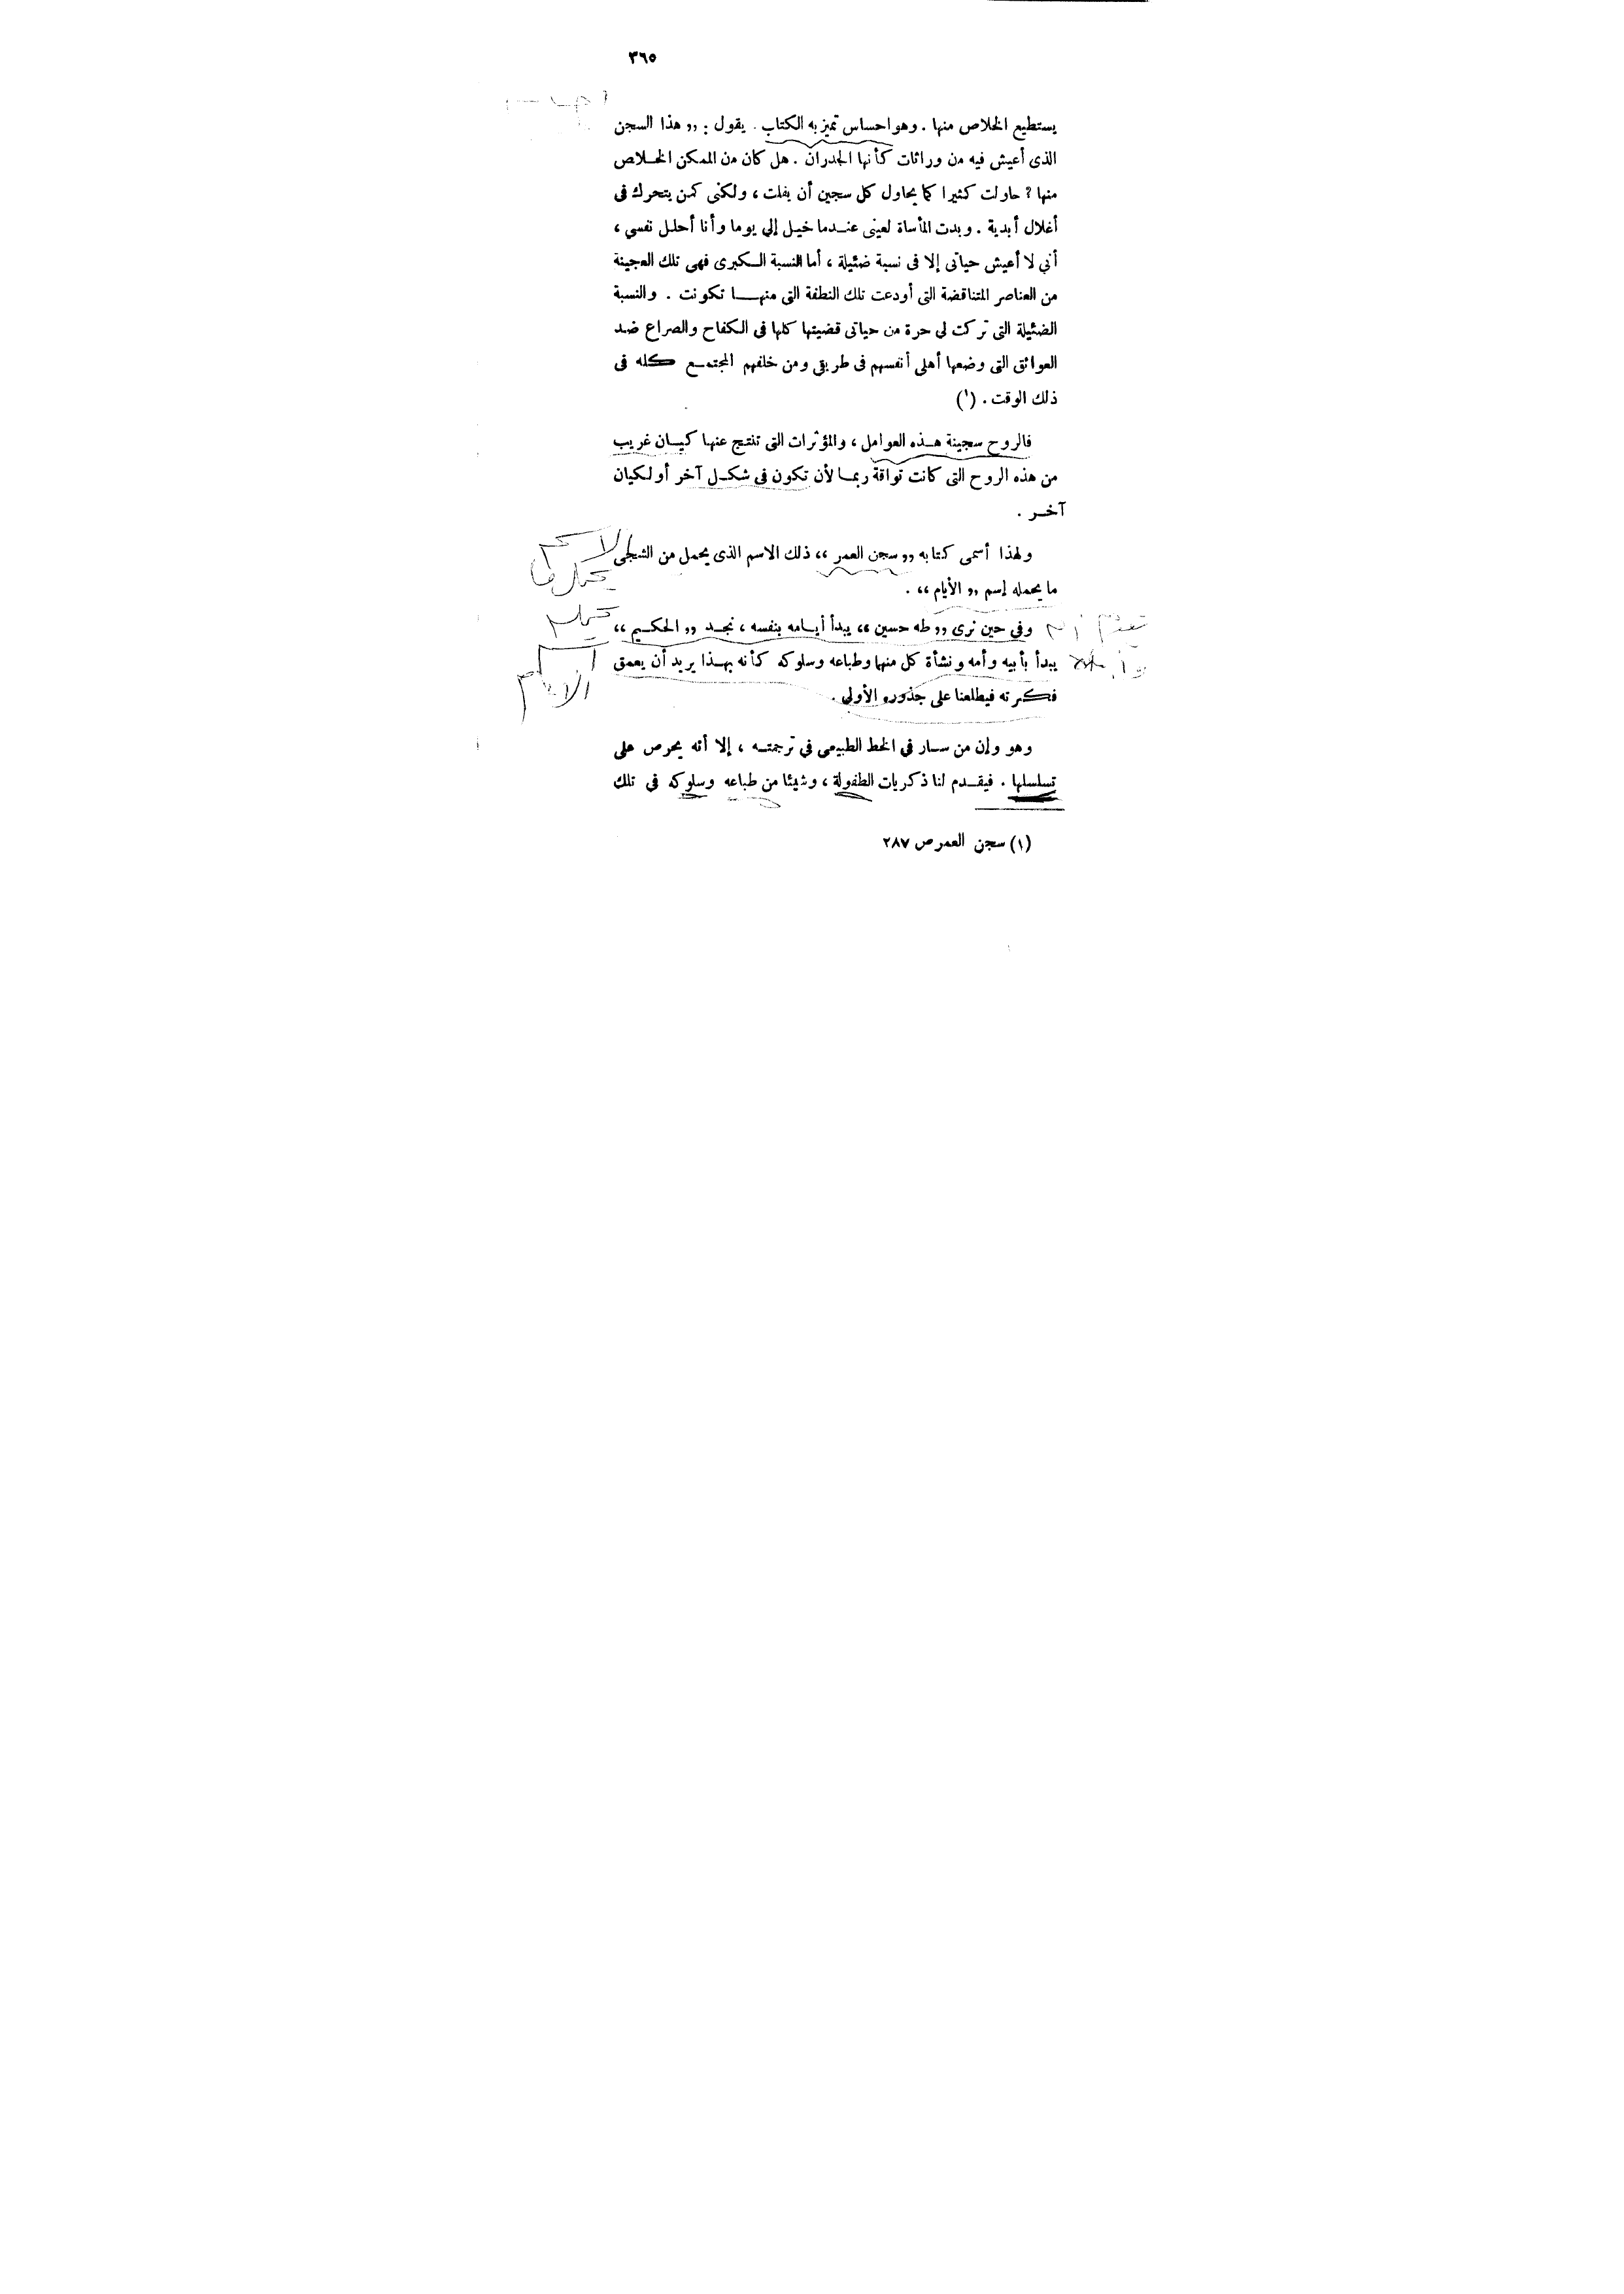 ٣٦٥
يستطيع الخلاص منها . وهو احساس تميز به الكتاب . يقول : ,, هذا السجن
الذى أعيش فيه من وراثات كأنها الجدران . هل كان من الممكن الخــلاص
منها ؟ حاولت كثيرا كما يحاول كل سجين أن يفلت ، ولكنى كمن يتحرك فى
أغلال أبدية . وبدت المأساة لعينى عنــدما خيــل إلي يوما وأنا أحلـل نفسي ،
أنى لا أعيش حياتى إلا فى نسبة ضئيلة ، أما النسبة الــكبرى فهى تلك العجينة
من العناصر المتناقضة التى أودعت تلك النطفة التى منهـــا تكونت . والنسبة
الضئيلة التى تركت لى حرة من حياتى قضيتها كلها فى الكفاح والصراع ضد
العوائق التى وضعها أهلى أنفسهم فى طريقى ومن خلفهم المجتمــع كله فى
ذلك الوقت . (١)
فالروح سجينة هــذه العوامل ، والمؤثرات التى تنتج عنها كيــان غريب
من هذه الروح التى كانت تواقة ربمــا لأن تكون فى شكــل آخر أو لكيان
آخــر .
ولهذا أسمى كتابه ,, سجن العمر ،، ذلك الاسم الذى يحمل من الشجى
ما يحمله إسم ,, الأيام ،، .
وفي حين نرى ,, طه حسين ،، يبدأ أيــامه بنفسه ، نجــد ,, الحكــيم ،،
يبدأ بأبيه وأمه ونشأة كل منهما وطباعه وسلوكه كأنه بهــذا يريد أن يعمق
فكرته فيطلعنا على جذوره الأولى .
وهو وإن من ســار في الخط الطبيعى في ترجمتــه ، إلا أنه يحرص على
تسلسلها . فيقــدم لنا ذكريات الطفولة ، وشيئا من طباعه وسلوكه في تلك
(١) سجن العمر ص ٢٨٧